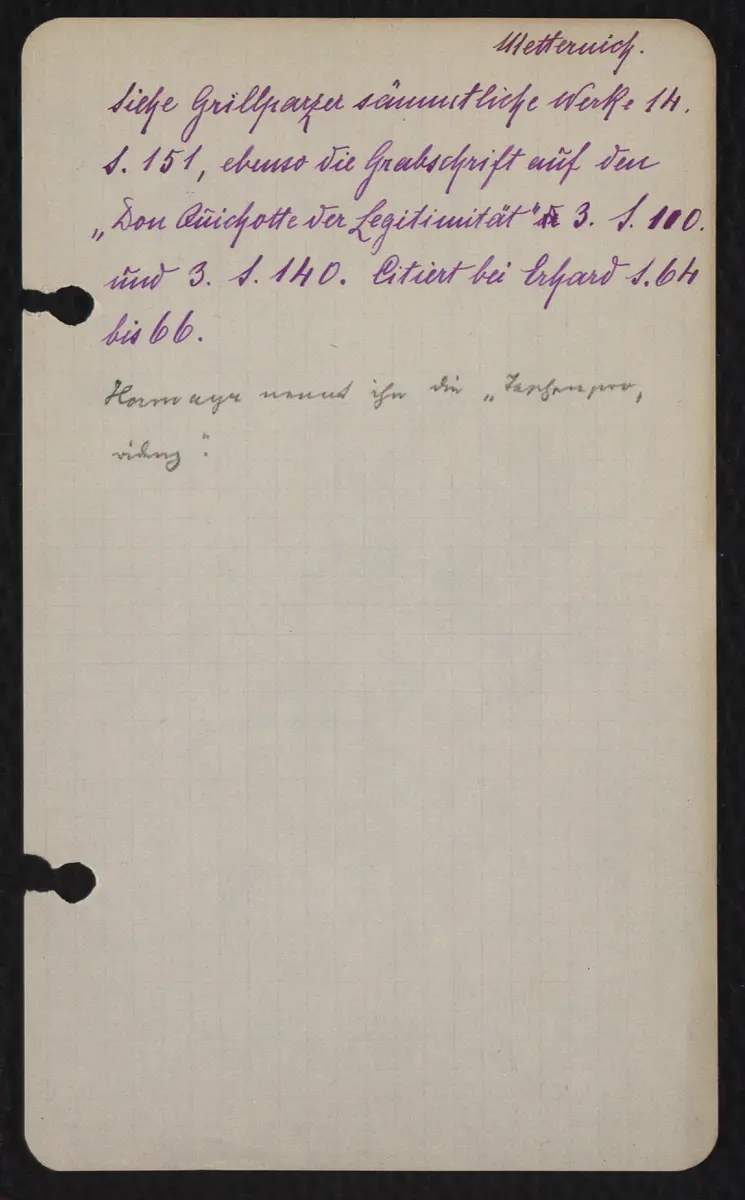 Metternich.
Siehe Grillparzer sämmtliche Werke 14.
S. 151, ebenso die Grabschrift auf den
„Don Quichotte der Legitimität" 3. S. 100.
und 3. S. 140. Citiert bei Erhard S. 64
bis 66.
Hormayr nennt ihn die „Taschenpro„
videnz".